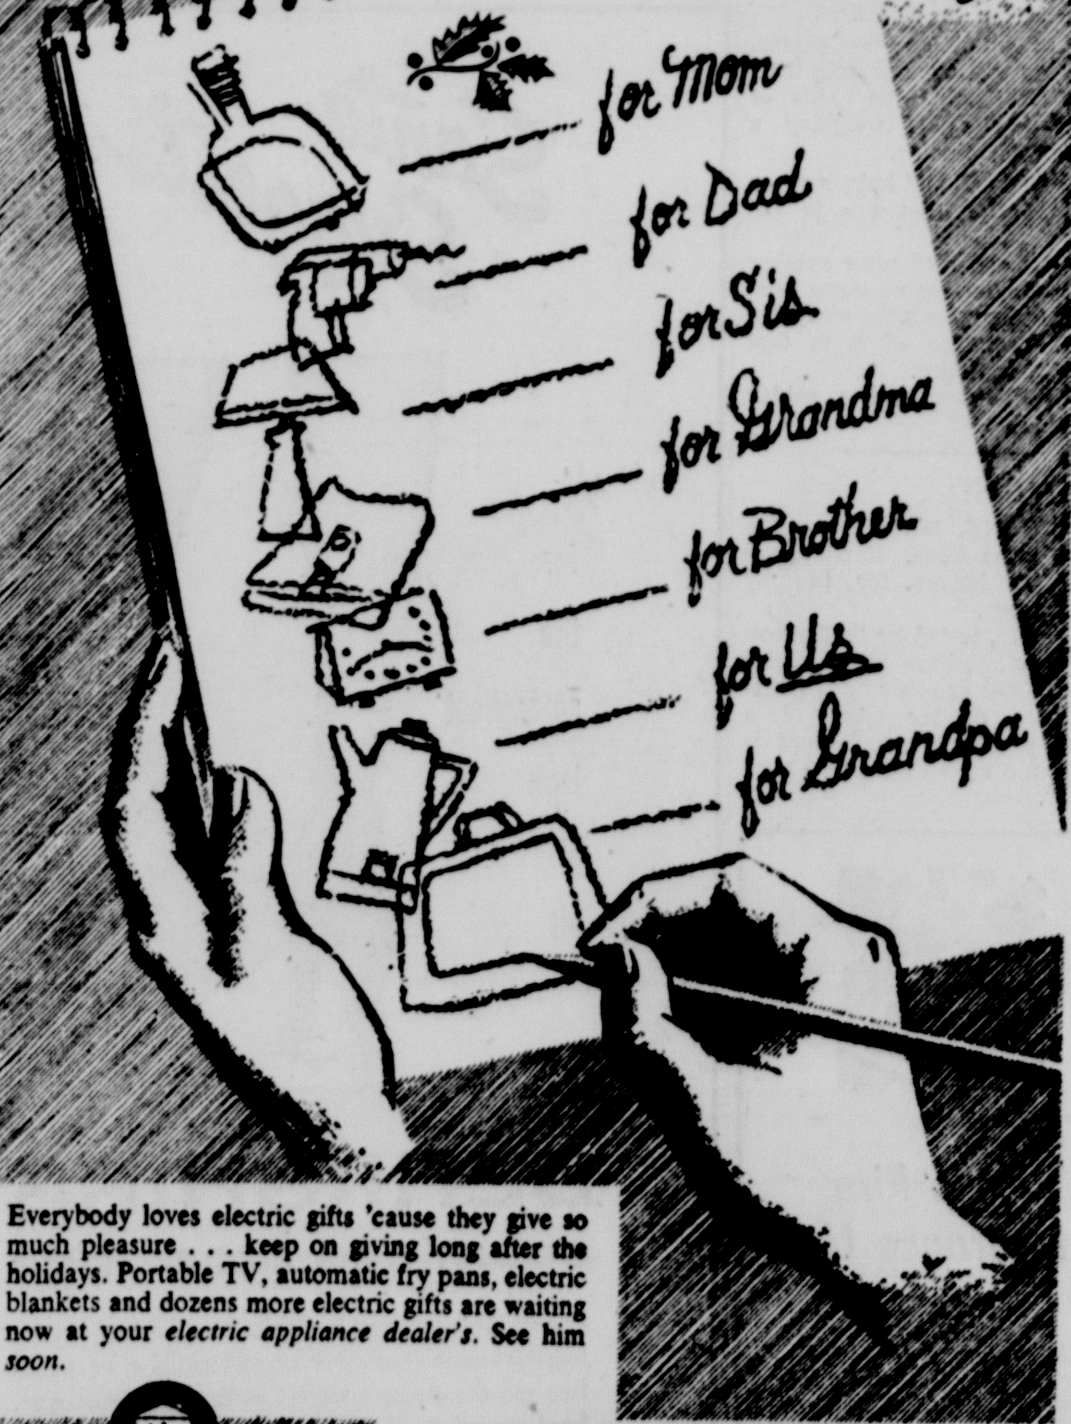 for Mom
for Dad
for Sis
for Grandma
for Brother
for Us
for Grandpa
Everybody loves electric gifts 'cause they give so
much pleasure . . . keep on giving long after the
holidays. Portable TV, automatic fry pans, electric
blankets and dozens more electric gifts are waiting
now at your electric appliance dealer's. See him
soon.